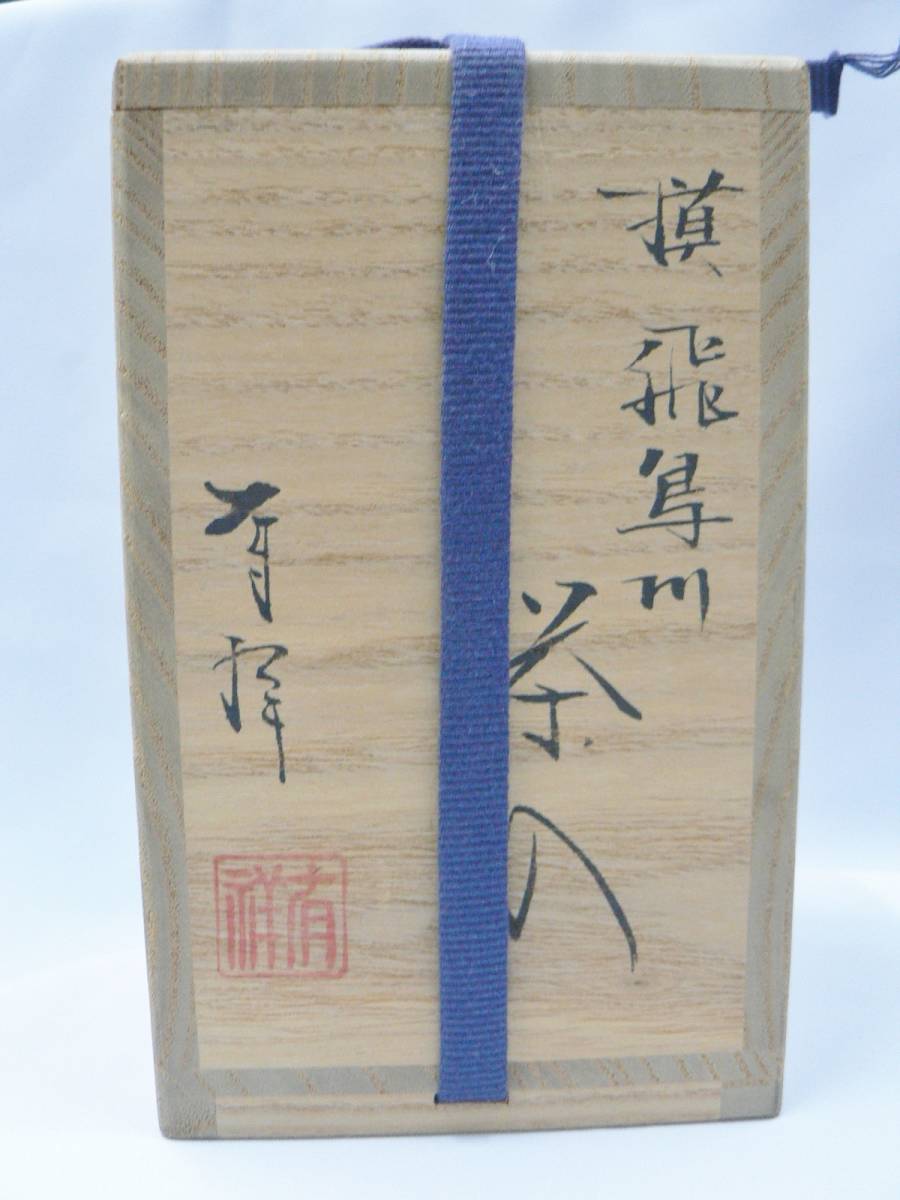 摸飛鳥川
茶入
有祥
有祥